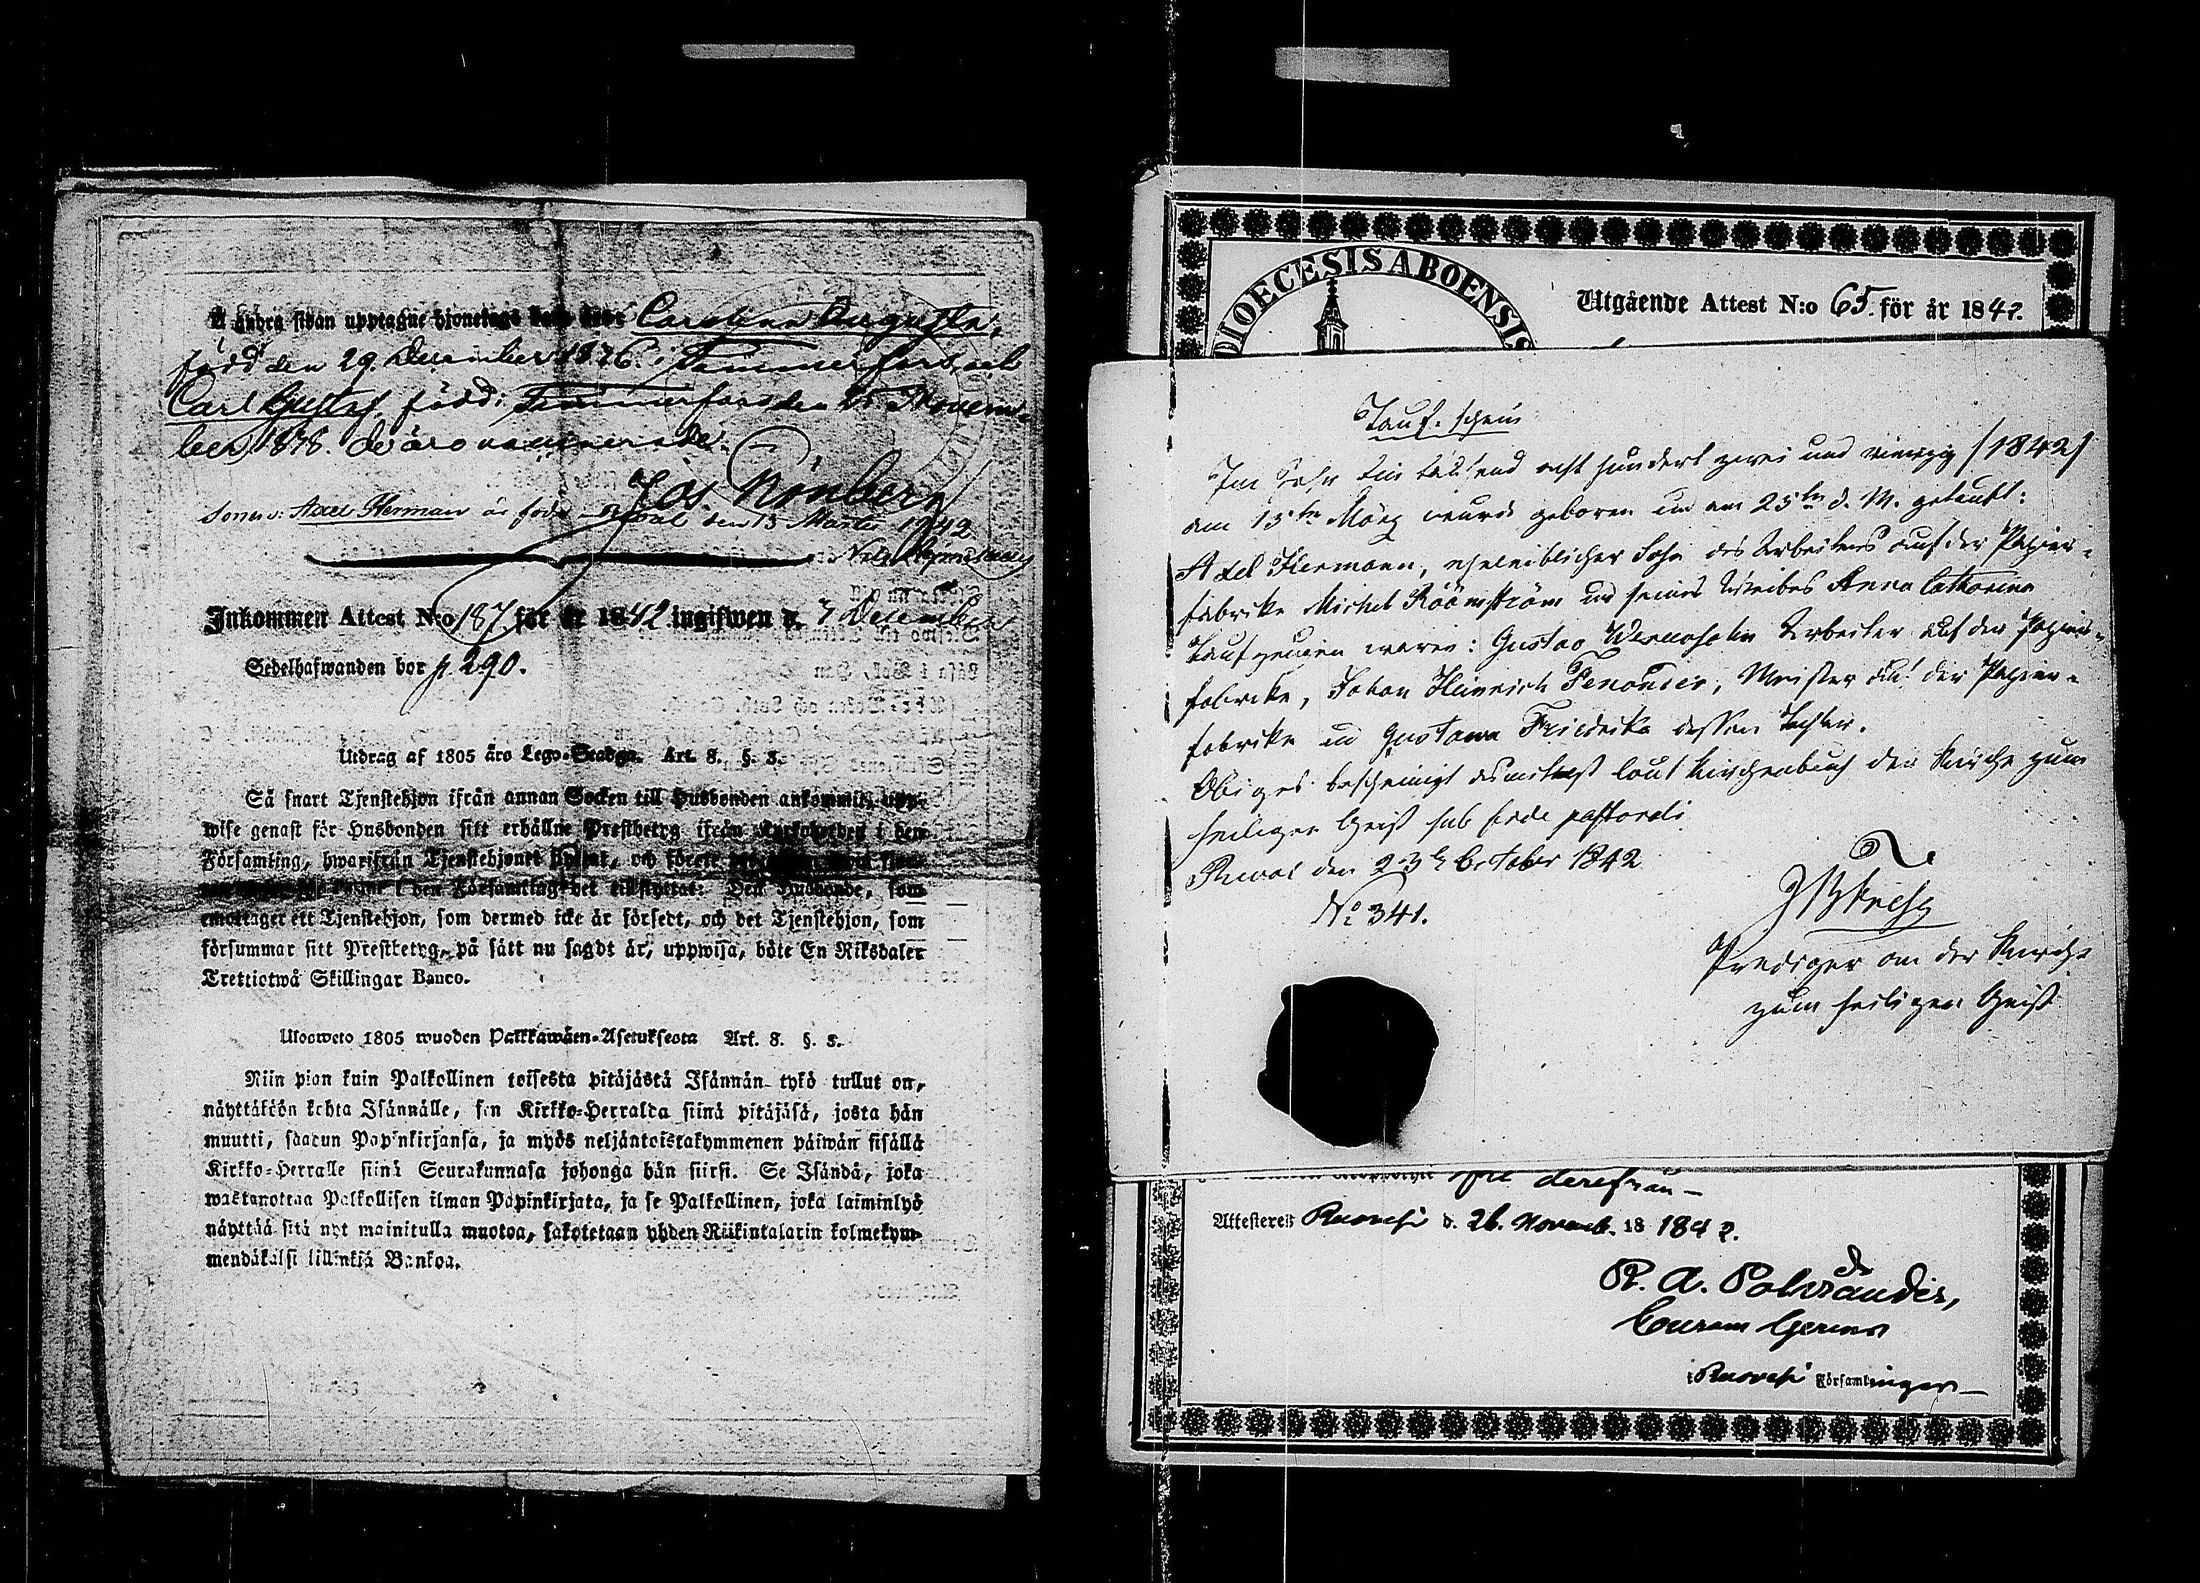 å andra sidan upptagne hjonelags Carolina Augusta,
född den 29. December 1836. i Tammerfors, och
Carl Gustaf, född i Tammerfors den 25 Novem-
ber 1838. de äro vaccinerade.
Jos. Rönberg
Sonen: Axel Herman är född i Reval den 13 Martii 1842
Inkommen Attest N:o 187 för år 1842 ingifwen d. 7 December
Sedelhafwanden bor p. 290.
Utdrag af 1805 åro Lego-Stadga. Art. 8. §. 3.
Så snart Tjenstehjon ifrån annan Socken till Husbonden ankommit, upp-
wise genast för Husbonden sitt erhållne Prestbetyg ifrån Kyrkoherden i den
Församling, hwarifrån Tjenstehjonet flyttat, och förete
i den Församling det tillflyttat: Den Husbonde, som
emottager ett Tjenstehjon, som dermed icke är försedt, och det Tjenstehjon, som
försummar sitt Prestbetyg, på sätt nu sagdt är, uppwisa, böte En Riksdaler
Trettiotwå Skillingar Banco.
Ulooweto 1805 wuoden Palkkawäen-Asetuksesta Art. 8. §. 3.
Niin pian kuin Palkollinen toisesta pitäjästä Isännän tykö tullut on,
näyttäköön kohta Isännälle, sen Kirkko-Herralda siinä pitäjäsä, josta hän
muutti, saadun Papinkirjansa, ja myös neljäntoistakymmenen päiwän sisällä
Kirkko-Herralle siinä Seurakunnasa johonga hän siirsi. Se Isändä, joka
wastanottaa Palkollisen ilman Papinkirjata, ja se Palkollinen, joka laiminlyö
näyttää sitä nyt mainitulla muotoa, sakotetaan yhden Riikintalarin kolmekym-
mendäkaksi killinkiä Bankoa.
DIOECESIS ABOENSIS
Utgående Attest N:o 65. för år 1842.
Tauf-schein
Im Jahr Ein tausend acht hundert zwei und vierzig /1842/
am 13ten März wurde geboren und am 25ten d. M. getauft:
Axel Hermann, eheleiblicher Sohn des Arbeiters auf der Papier-
fabrike Michel Röömström und seines Weibes Anna Catharina
Taufzeugen waren: Gustav Wernoholm Arbeiter auf der Papier-
fabrike, Johan Heinrich Fenander, Meister auf der Papier-
fabrike und Gustawa Friedrika dessen Tochter.
Obiges bescheinigt desmittelst laut Kirchenbuch der Kirche zum
heiligen Geist sub fide pastorali
Reval den 23ten October 1842
No 341.
Prediger an der Kirche
zum heiligen Geist
derefrån
Attesteres Ruovesi d. 26. Novemb. 18 1842.
R. A. Polviander,
Curam Gerens
i Ruovesi Församlingar